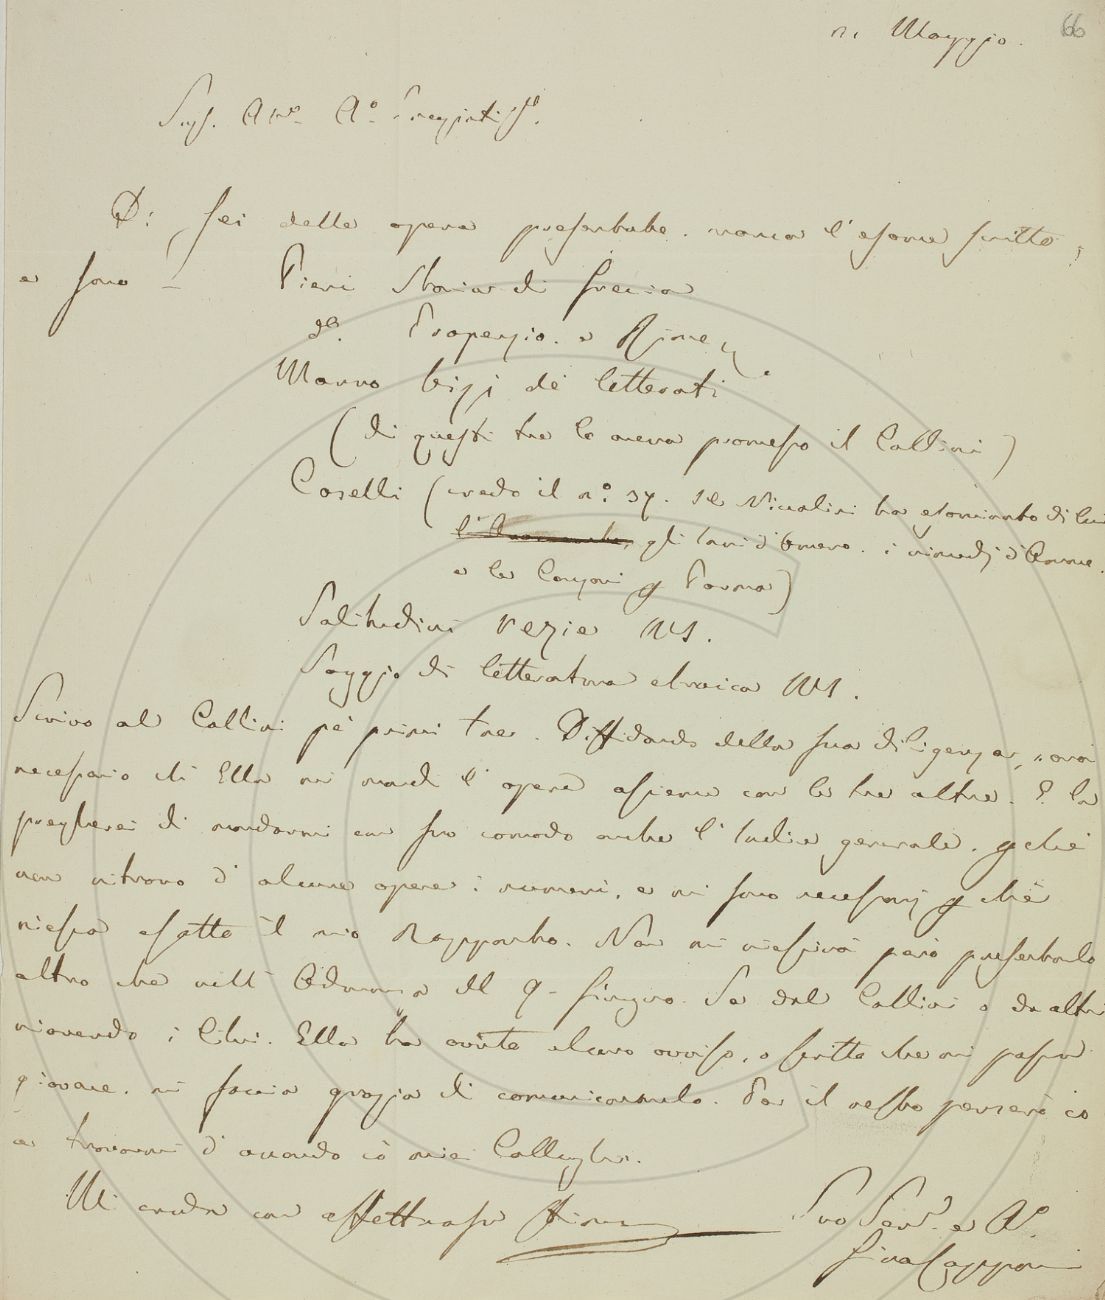 21 Maggio. 66
Sig. Am.o A.o Pregiatiss.
Di sei delle opere presentate manca l'esame scritto,
e sono — Pieri Storia di Grecia
d.o Properzio e Rime
Mauro Vizj de' letterati
(di questi tre lo aveva promesso il Collini)
Caselli (credo il n.o 37. se Nicolini ha esaminato di lui
gli Inni d'Omero. i rimedj d'Amore.
e le Canzoni p Parma)
Solitudini Poesie MS.
Saggio di letteratura ebraica MS.
Scrivo al Collini pe' primi tre. Diffidando della sua diligenza, sarà
necessario ch' Ella mi mandi l' opere assieme con le tre altre. E la
pregherei di mandarmi con suo comodo anche l' Indice generale. p chè
non ritrovo d' alcune opere i numeri, e mi sono necessarj p chè
riesca esatto il mio Rapporto. Non mi riescirà però presentarlo
altro che nell' Adunanza del 9. Giugno. Se dal Collini o da altri
ricevendo i libri. Ella ha avuto alcuno avviso, o scritto che mi possa
giovare. mi faccia grazia di comunicarmelo. Per il resto penserò io
a trovarmi d' accordo co' miei Colleghi.
Mi creda con affettuosa stima
Suo Ser.e e A.o
Gino Capponi